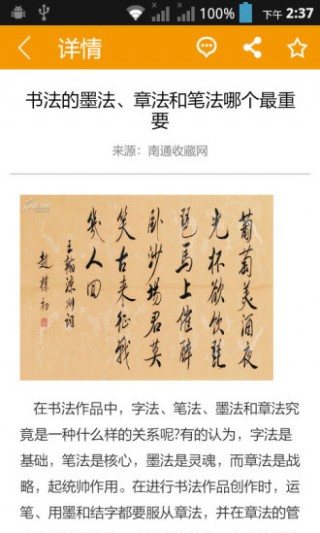 100% 下午 2:37
详情
书法的墨法、章法和笔法哪个最重
要
来源：南通收藏网
葡萄美酒夜
光杯欲飲琵
琶馬上催醉
卧沙場君莫
笑古来征戰
幾人回
王翰凉州词
趙樸初
在书法作品中，字法、笔法、墨法和章法究
竟是一种什么样的关系呢?有的认为，字法是
基础，笔法是核心，墨法是灵魂，而章法是战
略，起统帅作用。在进行书法作品创作时，运
笔、用墨和结字都要服从章法，并在章法的管